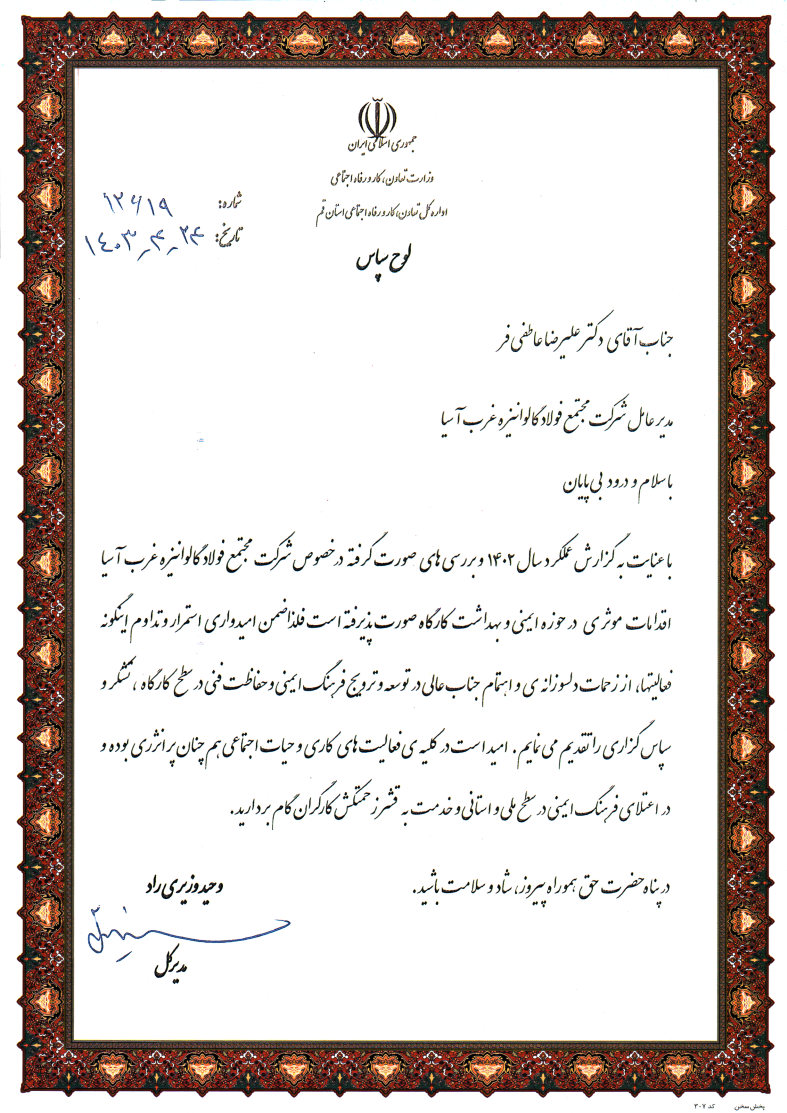 جمهوری اسلامی ایران
وزارت تعاون، کار و رفاه اجتماعی
اداره کل تعاون، کار و رفاه اجتماعی استان قم
شماره: ۱۲۶۱۹
تاریخ: ۱۴۰۳-۴-۲۴
لوح سپاس
جناب آقای دکتر علیرضا عاطفی فر
مدیر عامل شرکت مجتمع فولاد گالوانیزه غرب آسیا
با سلام و درود بی پایان
با عنایت به گزارش عملکرد سال ۱۴۰۲ و بررسی های صورت گرفته در خصوص شرکت مجتمع فولاد گالوانیزه غرب آسیا
اقدامات موثری در حوزه ایمنی و بهداشت کارگاه صورت پذیرفته است فلذا ضمن امیدواری استمرار و تداوم اینگونه
فعالیتها، از زحمات دلسوزانه ی و اهتمام جناب عالی در توسعه و ترویج فرهنگ ایمنی و حفاظت فنی در سطح کارگاه ، تشکر و
سپاس گزاری را تقدیم می نمایم . امید است در کلیه ی فعالیت های کاری و حیات اجتماعی هم چنان پر انژری بوده و
در اعتلای فرهنگ ایمنی در سطح ملی و استانی و خدمت به قشر زحمتکش کارگران گام بردارید.
در پناه حضرت حق همواره پیروز، شاد و سلامت باشید.
وحید وزیری راد
مدیرکل
پخش سخن کد ۳۰۷